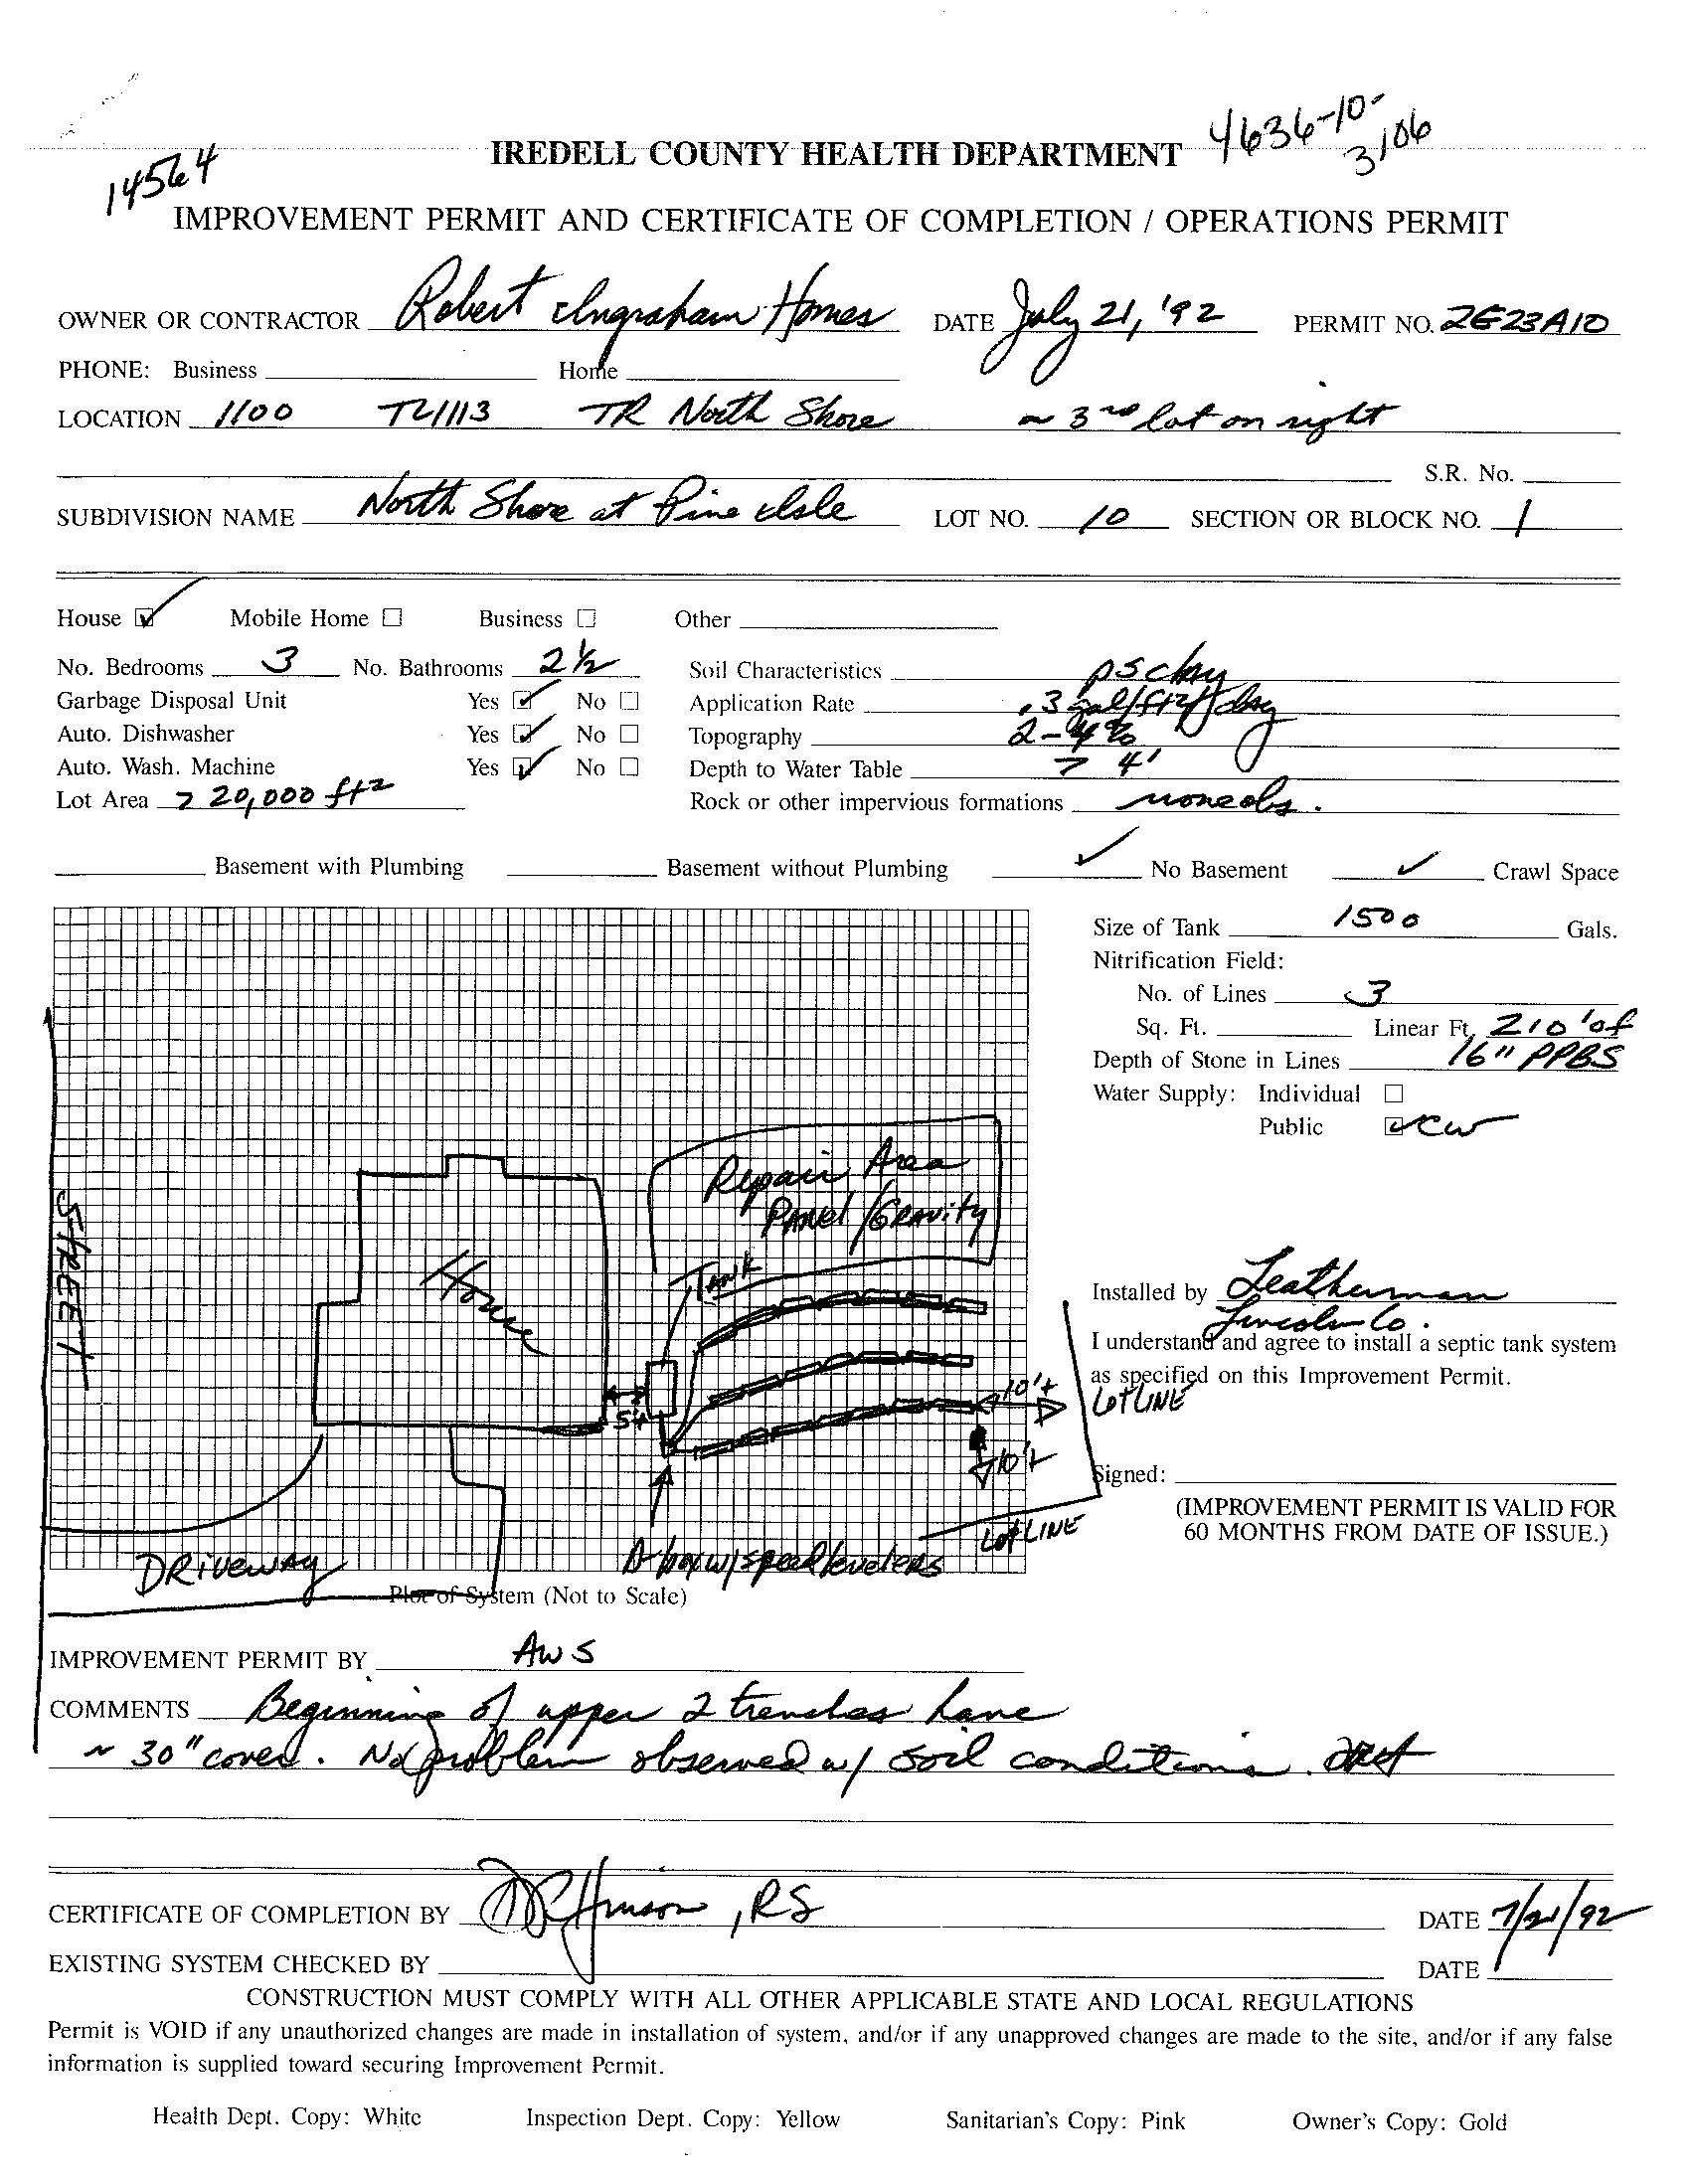 4636-10-
3106
14564
IREDELL COUNTY HEALTH DEPARTMENT
IMPROVEMENT PERMIT AND CERTIFICATE OF COMPLETION / OPERATIONS PERMIT
OWNER OR CONTRACTOR Robert Ingraham Homes DATE July 21, '92 PERMIT NO. 2E23A10
PHONE: Business Home
LOCATION 1100 TL1113 TR North Shore ~ 3rd lot on right
S.R. No.
SUBDIVISION NAME North Shore at Pine Isle LOT NO. 10 SECTION OR BLOCK NO. 1
House Mobile Home Business Other
No. Bedrooms 3 No. Bathrooms 2 1/2 Soil Characteristics ps clay
Garbage Disposal Unit Yes No Application Rate .3 gal/ft2/day
Auto. Dishwasher Yes No Topography 2-4%
Auto. Wash. Machine Yes No Depth to Water Table > 4'
Lot Area > 20,000 ft2 Rock or other impervious formations none obs.
Basement with Plumbing Basement without Plumbing No Basement Crawl Space
Size of Tank 1500 Gals.
Nitrification Field:
No. of Lines 3
Sq. Ft. Linear Ft. 210' of
Depth of Stone in Lines 16" PPBS
Water Supply: Individual
Public CW
Repair Area
Panel/Gravity
STREET
House
TANK
5'+
10'+
LOT LINE
10'+
LOT LINE
D-box w/speed levelers
DRIVEWAY
Installed by Leatherman
Lincoln Co.
I understand and agree to install a septic tank system
as specified on this Improvement Permit.
Signed:
(IMPROVEMENT PERMIT IS VALID FOR
60 MONTHS FROM DATE OF ISSUE.)
Plot of System (Not to Scale)
IMPROVEMENT PERMIT BY AWS
COMMENTS Beginning of upper 2 trenches have
~ 30" cover. No problem observed w/ soil conditions.
CERTIFICATE OF COMPLETION BY , RS DATE 7/21/92
EXISTING SYSTEM CHECKED BY DATE
CONSTRUCTION MUST COMPLY WITH ALL OTHER APPLICABLE STATE AND LOCAL REGULATIONS
Permit is VOID if any unauthorized changes are made in installation of system, and/or if any unapproved changes are made to the site, and/or if any false
information is supplied toward securing Improvement Permit.
Health Dept. Copy: White Inspection Dept. Copy: Yellow Sanitarian's Copy: Pink Owner's Copy: Gold